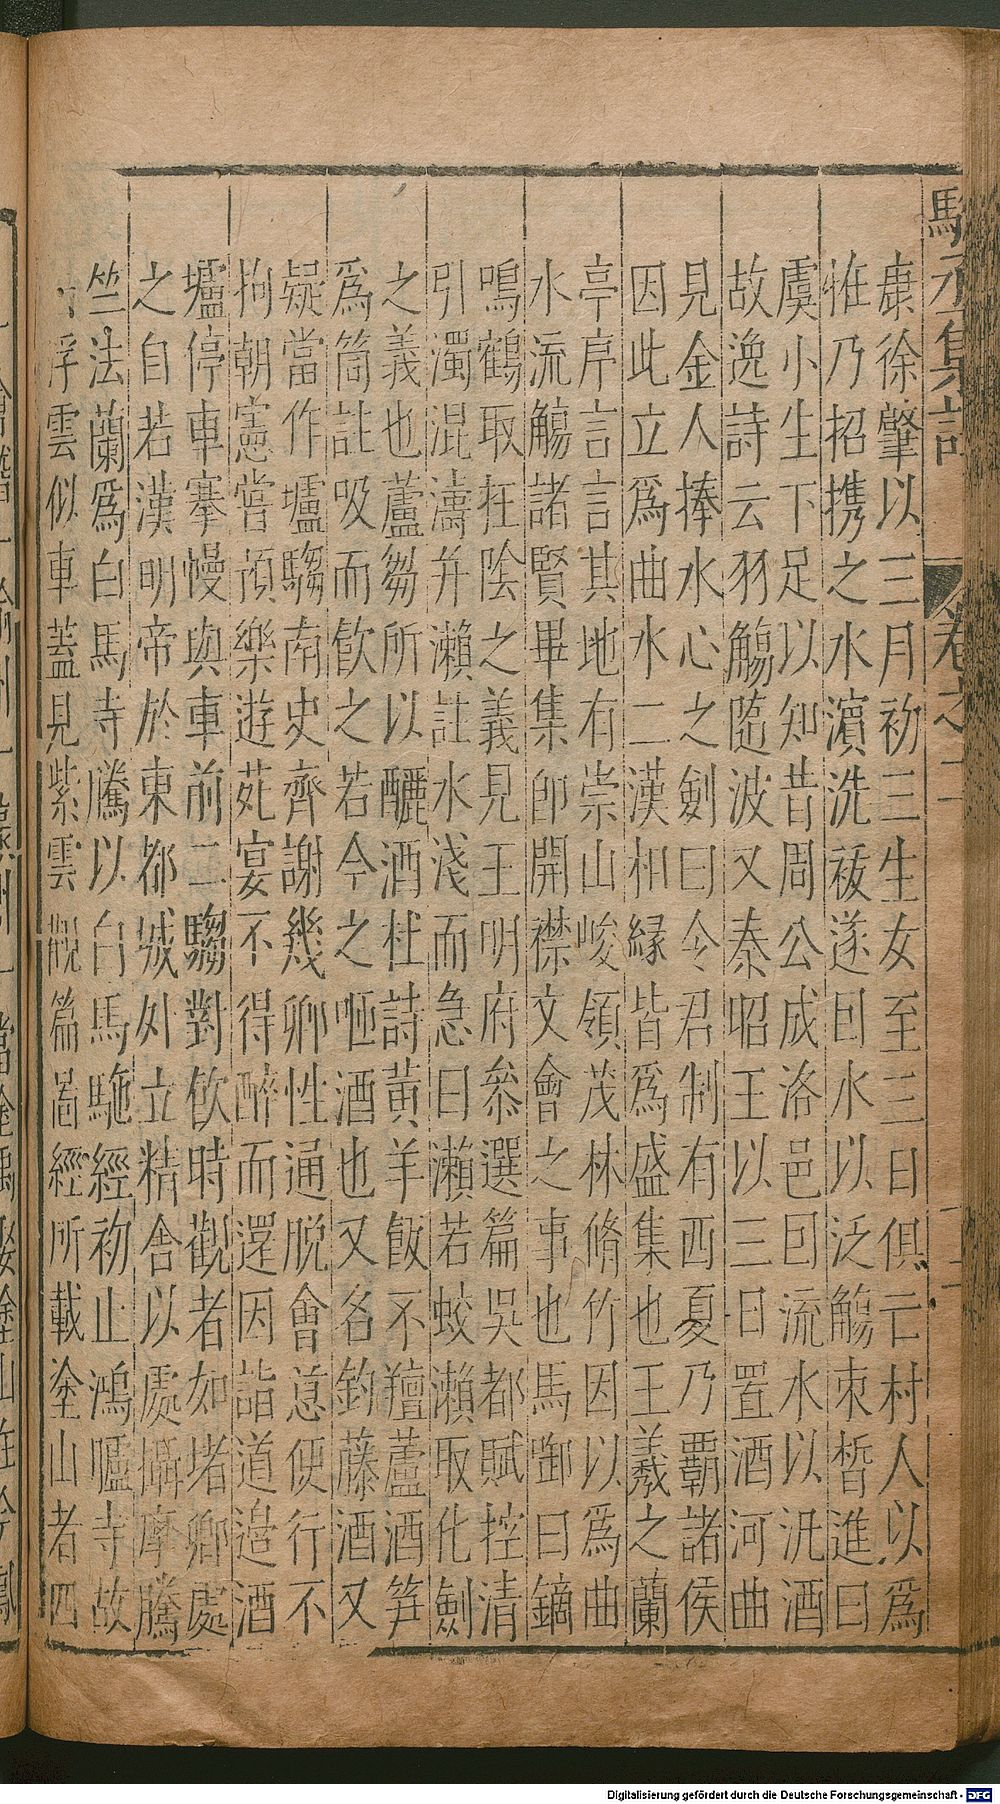 駱丞集註 卷之二 二
康徐肇以三月初三生女至三日俱亡村人以爲
恠乃招攜之水濱洗祓遂囙水以泛觴束皙進曰
虞小生下足以知昔周公成洛邑囙流水以汎酒
故逸詩云羽觴隨波又秦昭王以三日置酒河曲
見金人捧水心之劍曰令君制有西夏乃覇諸侯
因此立爲曲水二漢相緣皆爲盛集也王羲之蘭
亭序言言其地有崇山峻領茂林脩竹因以爲曲
水流觴諸賢畢集卽開襟文會之事也馬卿曰鏑
鳴鶴取在陰之義見王明府叅選篇吳都賦控清
引濁混濤并瀨註水淺而急曰瀨若蛟瀨取化劍
之義也蘆芻所以釃酒杜詩黃羊飯不羶蘆酒笋
爲筒註吸而飲之若今之咂酒也又名釣藤酒又
疑當作壚騶南史齊謝幾卿性通脫會意便行不
拘朝憲嘗預樂遊苑宴不得醉而還因詣道邉酒
壚停車褰幔與車前二騶對飲時觀者如堵卿處
之自若漢明帝於東都城外立精舍以處攝摩騰
竺法蘭爲白馬寺騰以白馬駞經初止鴻臚寺故
浮雲似車蓋見紫雲觀篇啚經所載塗山者四
Digitalisierung gefördert durch die Deutsche Forschungsgemeinschaft - DFG